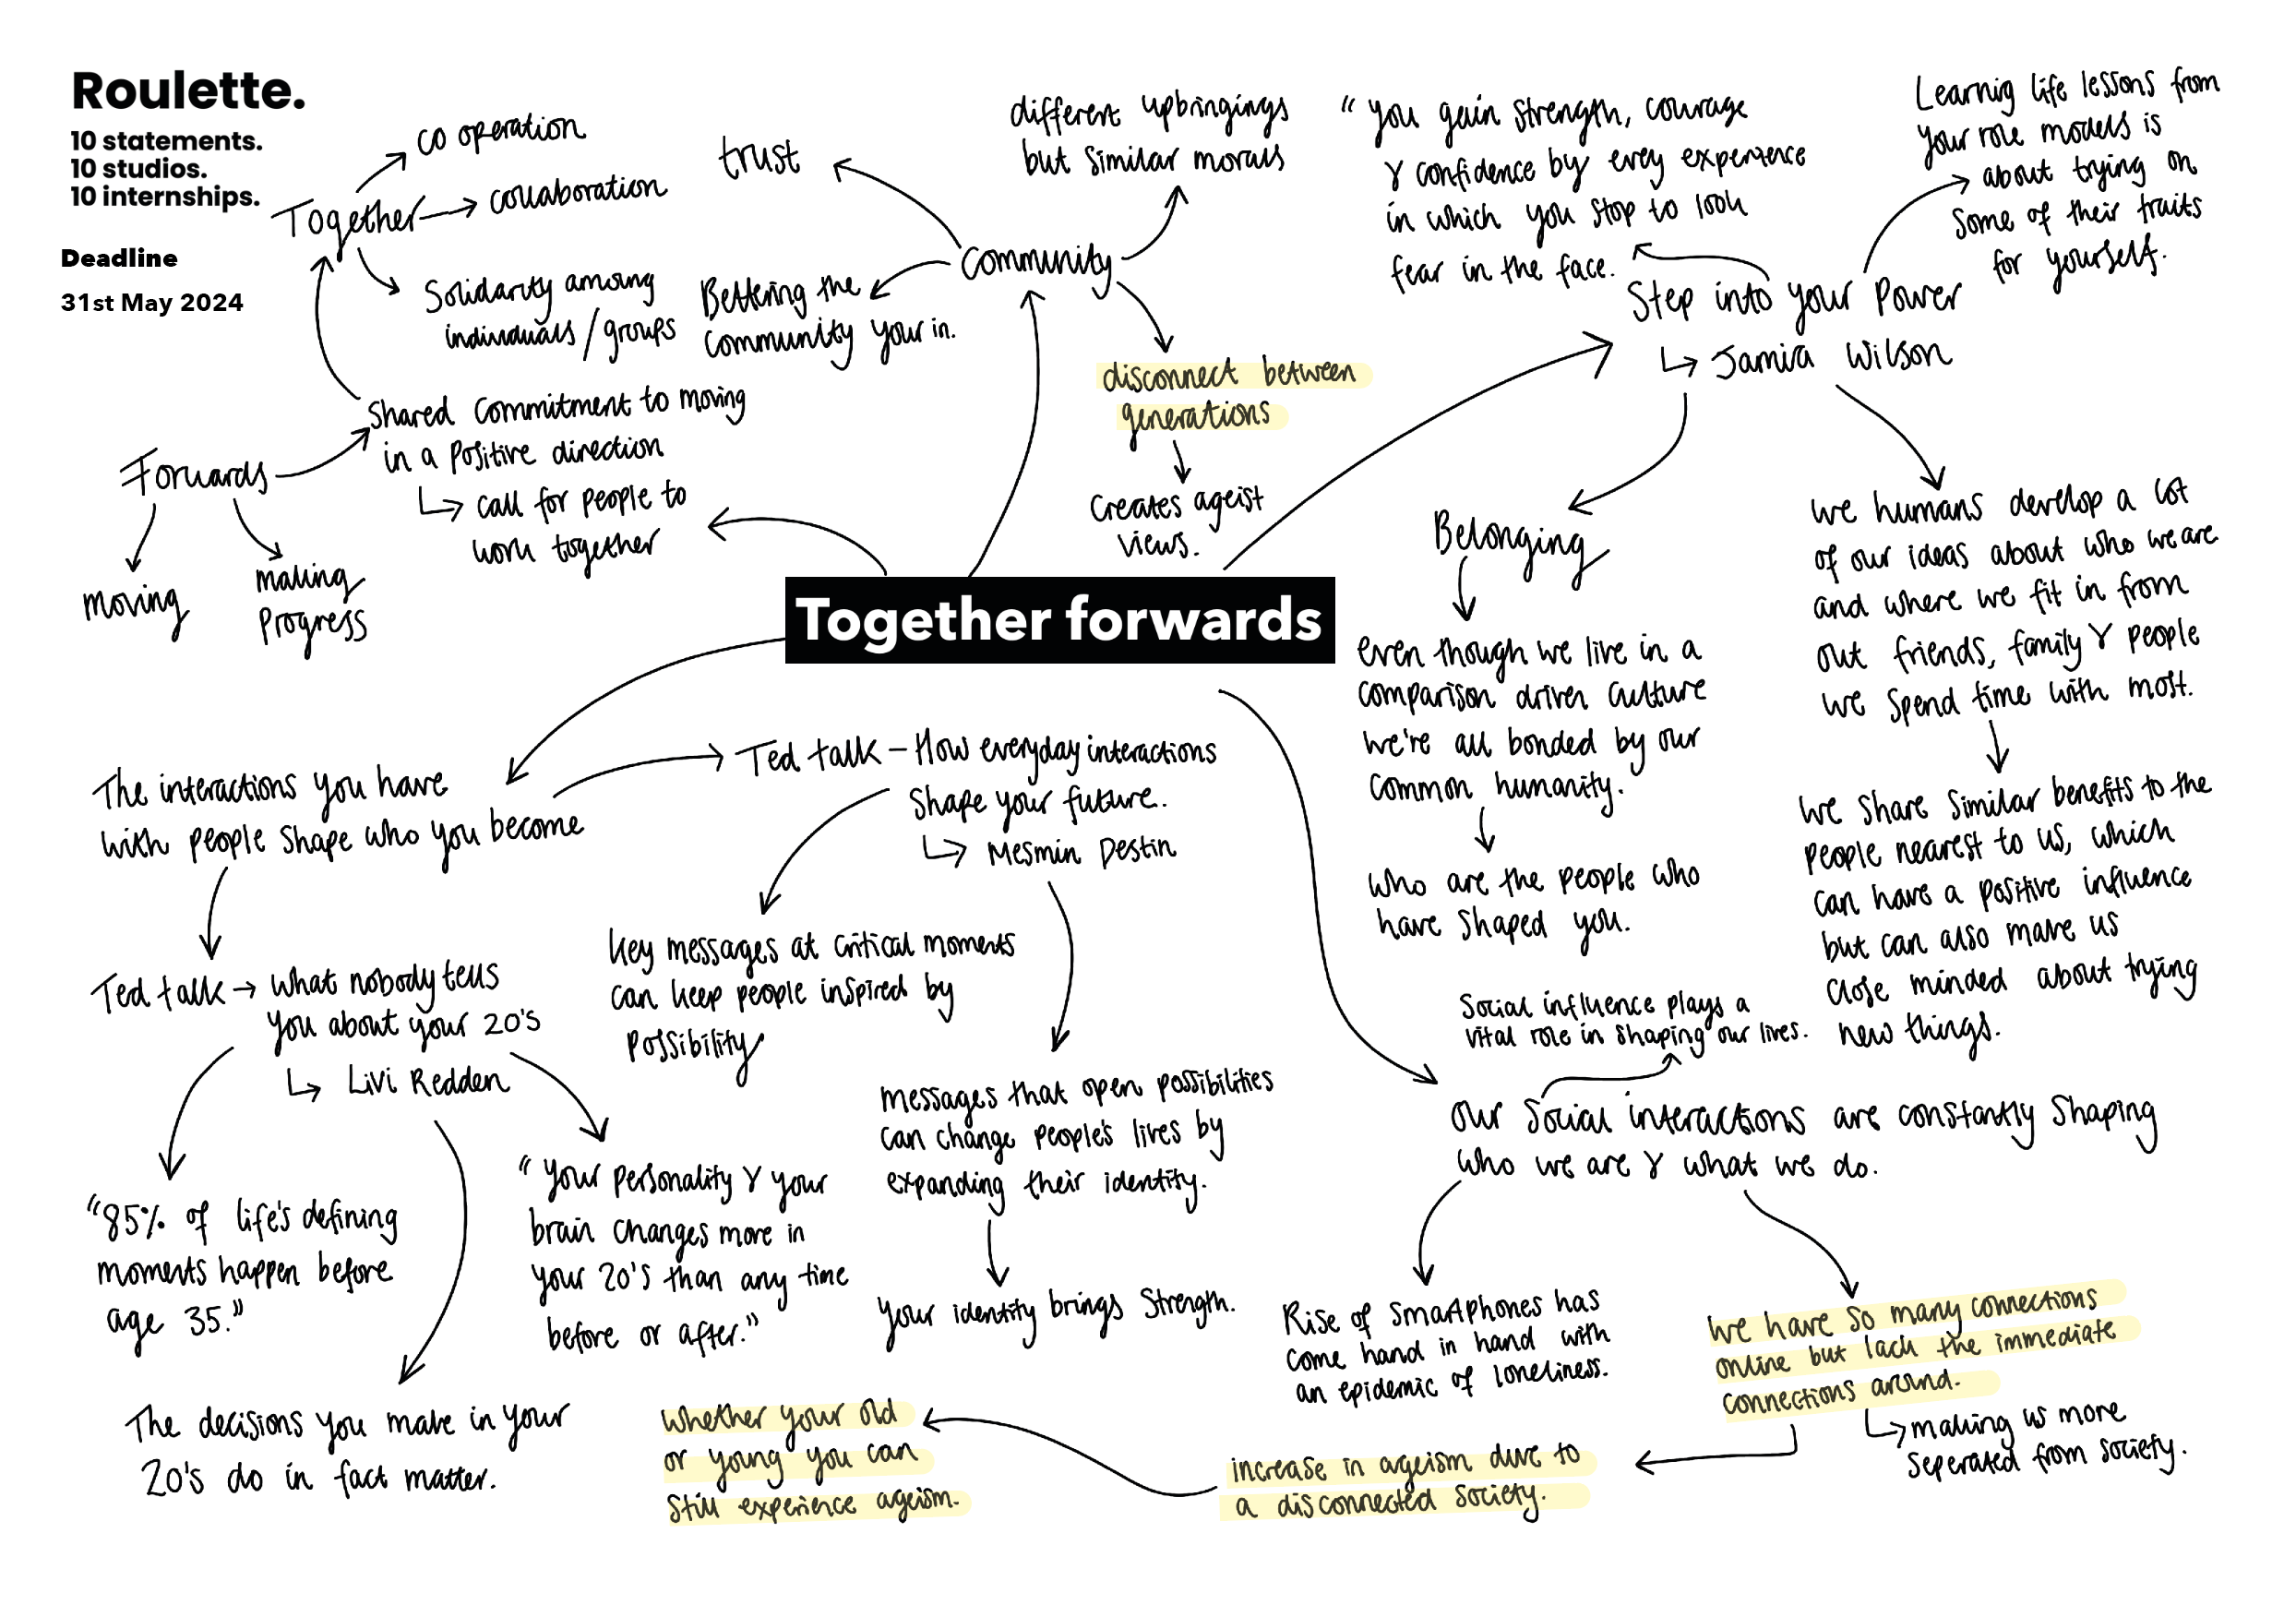 Roulette.
10 statements.
10 studios.
10 internships.
Deadline
31st May 2024
Together
co operation
collaboration
Solidarity among
individuals / groups
Forwards
moving
making
progress
Shared commitment to moving
in a positive direction
call for people to
work together
trust
Community
different upbringings
but similar morals
Bettering the
community your in.
disconnect between
generations
Creates ageist
views.
"you gain strength, courage
& confidence by evey experience
in which you stop to look
fear in the face.
Step into your Power
Jamia Wilson
Learnig life lessons from
your role models is
about trying on
some of their traits
for yourself.
Belonging
even though we live in a
comparison driven culture
we're all bonded by our
common humanity.
who are the people who
have shaped you.
we humans develop a lot
of our ideas about who we are
and where we fit in from
out friends, family & people
we spend time with most.
we share similar benefits to the
people nearest to us, which
can have a positive influence
but can also make us
close minded about trying
new things.
Together forwards
The interactions you have
with people shape who you become
Ted talk – How everyday interactions
shape your future.
Mesmin Destin
key messages at critical moments
can keep people inspired by
possibility
messages that open possibilities
can change people's lives by
expanding their identity.
your identity brings strength.
Ted talk → what nobody tells
you about your 20's
Livi Redden
"85% of life's defining
moments happen before
age 35."
"your personality & your
brain changes more in
your 20's than any time
before or after."
The decisions you make in your
20's do in fact matter.
Social influence plays a
vital role in shaping our lives.
our social interactions are constantly shaping
who we are & what we do.
Rise of smartphones has
come hand in hand with
an epidemic of loneliness.
we have so many connections
online but lack the immediate
connections around.
making us more
seperated from society.
increase in ageism due to
a disconnected society.
whether your old
or young you can
still experience ageism.